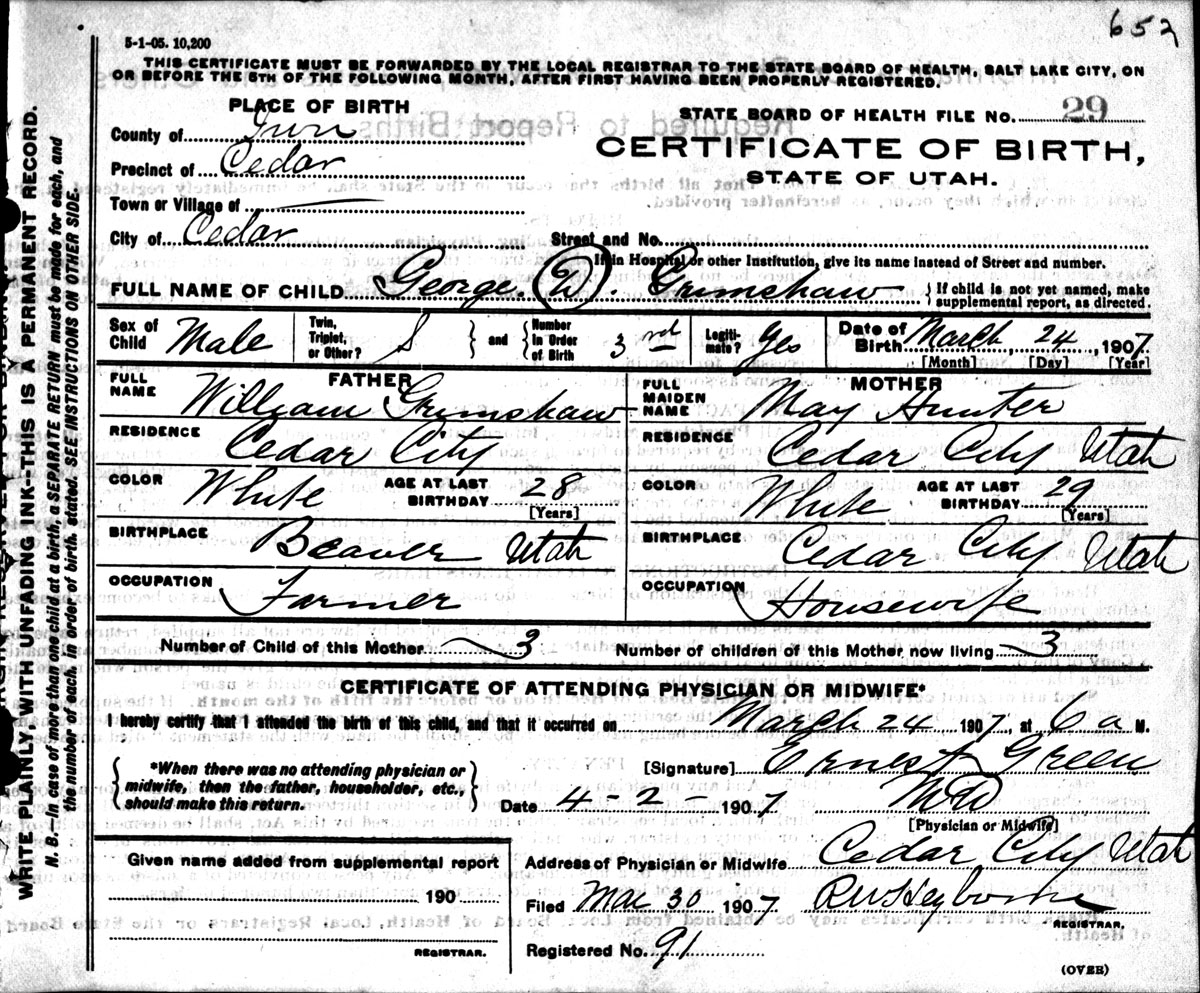 652
5-1-05. 10,200
THIS CERTIFICATE MUST BE FORWARDED BY THE LOCAL REGISTRAR TO THE STATE BOARD OF HEALTH, SALT LAKE CITY, ON
OR BEFORE THE 5TH OF THE FOLLOWING MONTH, AFTER FIRST HAVING BEEN PROPERLY REGISTERED.
PLACE OF BIRTH
County of Iron
Precinct of Cedar
Town or Village of
City of Cedar
STATE BOARD OF HEALTH FILE NO. 29
CERTIFICATE OF BIRTH,
STATE OF UTAH.
Street and No.
If in Hospital or other Institution, give its name instead of Street and number.
FULL NAME OF CHILD George. (W). Grimshaw { If child is not yet named, make supplemental report, as directed.
Sex of Child Male Twin, Triplet, or Other? S } and { Number in Order of Birth 3rd Legiti-mate? Yes Date of Birth March 24, 1907
[Month] [Day] [Year]
FATHER
FULL NAME William Grimshaw
RESIDENCE Cedar City
COLOR White AGE AT LAST BIRTHDAY 28
[Years]
BIRTHPLACE Beaver Utah
OCCUPATION Farmer
MOTHER
FULL MAIDEN NAME May Hunter
RESIDENCE Cedar City Utah
COLOR White AGE AT LAST BIRTHDAY 29
[Years]
BIRTHPLACE Cedar City Utah
OCCUPATION Housewife
Number of Child of this Mother 3 Number of children of this Mother now living 3
CERTIFICATE OF ATTENDING PHYSICIAN OR MIDWIFE*
I hereby certify that I attended the birth of this child, and that it occurred on March 24 1907, at 6 a M.
{ *When there was no attending physician or midwife, then the father, householder, etc., should make this return. }
[Signature] Ernest Green
Date 4-2-1907 MD
[Physician or Midwife]
Given name added from supplemental report
190
REGISTRAR.
Address of Physician or Midwife Cedar City Utah
Filed Mar 30 1907
REGISTRAR.
Registered No. 91
(OVER)
WRITE PLAINLY, WITH UNFADING INK—THIS IS A PERMANENT RECORD.
N. B.—In case of more than one child at a birth, a SEPARATE RETURN must be made for each, and
the number of each, in order of birth, stated. SEE INSTRUCTIONS ON OTHER SIDE.